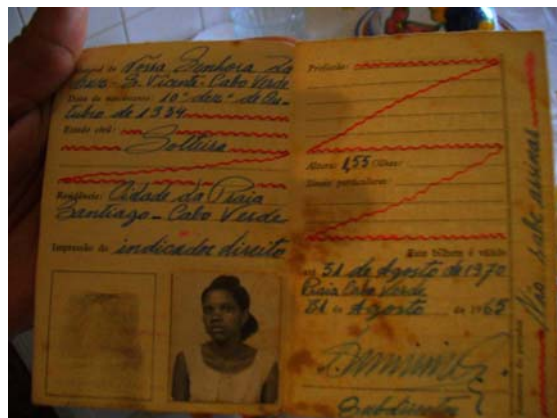 Natural de Nossa Senhora da
Luz - S. Vicente - Cabo Verde
Data do nascimento: 10 = dez = de Ou-
tubro de 1934
Estado civil:
Solteira
Residência: Cidade da Praia
Santiago - Cabo Verde
Impressão do indicador direito
Profissão:
Altura: 1,55
Sinais particulares:
Este bilhete é válido
até 31 de Agosto de 1970
Praia Cabo Verde
31 de Agosto de 1965
Não sabe assinar